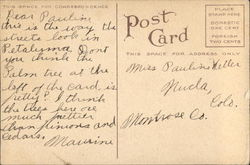 THIS SPACE FOR CORRESPONDENCE
Dear Pauline
this is the way the
streets look in
Petaluma. Dont
you think the
Palm tree at the
left of the Card is
pretty? I think
the trees here are
much prettier
than pinions and
cedars.
Maurine
Post
Card
PLACE
STAMP HERE
DOMESTIC
ONE CENT
FOREIGN
TWO CENTS
THIS SPACE FOR ADDRESS ONLY
Miss Pauline
Nucla,
Colo.
Montrose Co.